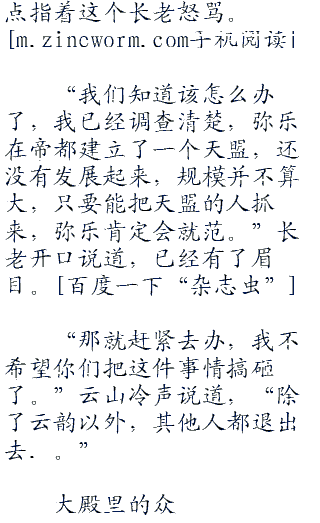 点指着这个长老怒骂。
[m.zincworm.com手机阅读i
“我们知道该怎么办
了，我已经调查清楚，弥乐
在帝都建立了一个天盟，还
没有发展起来，规模并不算
大，只要能把天盟的人抓
来，弥乐肯定会就范。”长
老开口说道，已经有了眉
目。[百度一下“杂志虫”]
“那就赶紧去办，我不
希望你们把这件事情搞砸
了。”云山冷声说道，“除
了云韵以外，其他人都退出
去．。”
大殿里的众